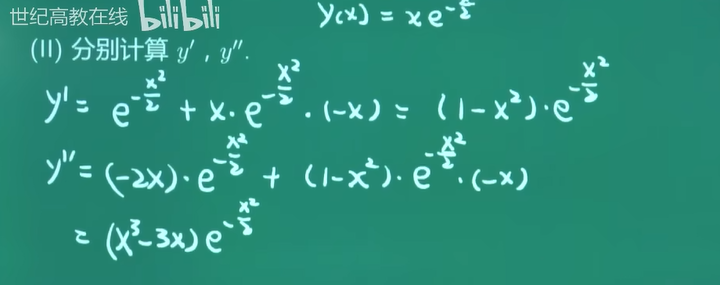 世纪高教在线 bilibili
y(x) = x e^{-\frac{x^2}{2}}
(II) 分别计算 y′ , y″.
y' = e^{-\frac{x^2}{2}} + x · e^{-\frac{x^2}{2}} · (-x) = (1-x^2) · e^{-\frac{x^2}{2}}
y'' = (-2x) · e^{-\frac{x^2}{2}} + (1-x^2) · e^{-\frac{x^2}{2}} · (-x)
= (x^3-3x) e^{-\frac{x^2}{2}}